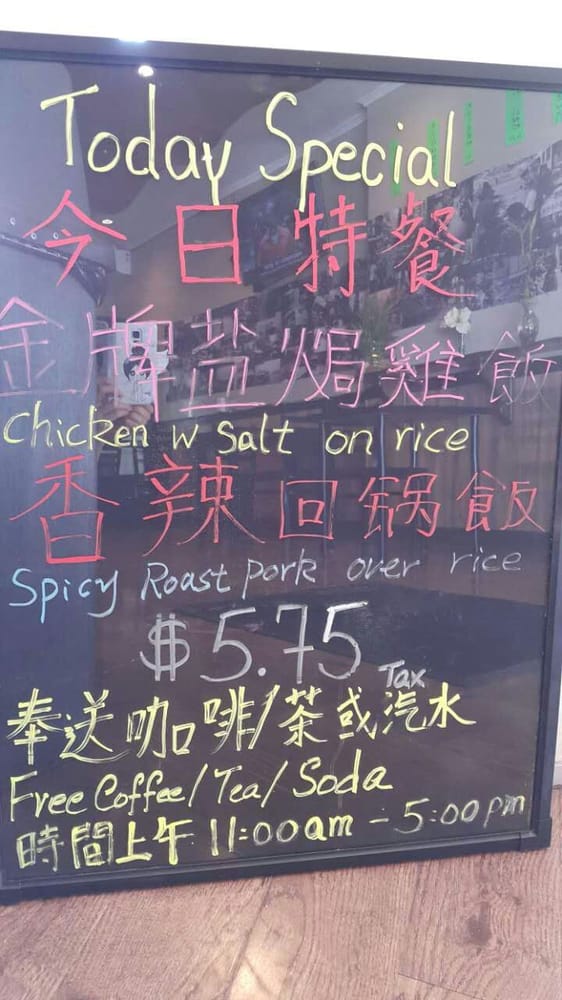 Today Special
今日特餐
金牌盐焗雞飯
Chicken w Salt on rice
香辣回锅飯
Spicy Roast pork over rice
$5.75 Tax
奉送咖啡/茶或汽水
Free Coffee/Tea/Soda
時間上午 11:00am - 5:00pm